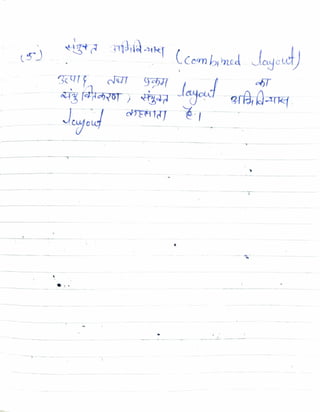 (5) संयुक्त अभिविन्यास (combined layout)
उत्पाद तथा प्रक्रम layout का
संयुक्तिकरण, संयुक्त अभिविन्यास
layout कहलाता है।